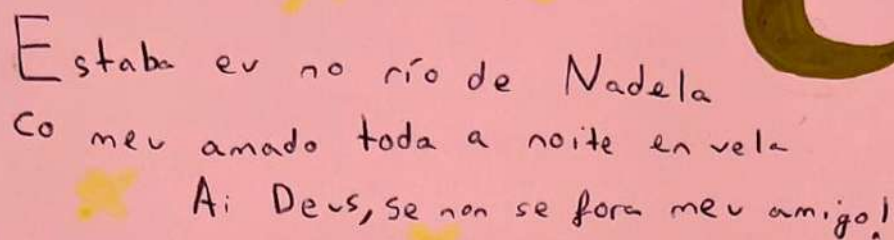 Estaba eu no río de Nadela
Co meu amado toda a noite en vela
Ai Deus, se non se fora meu amigo!